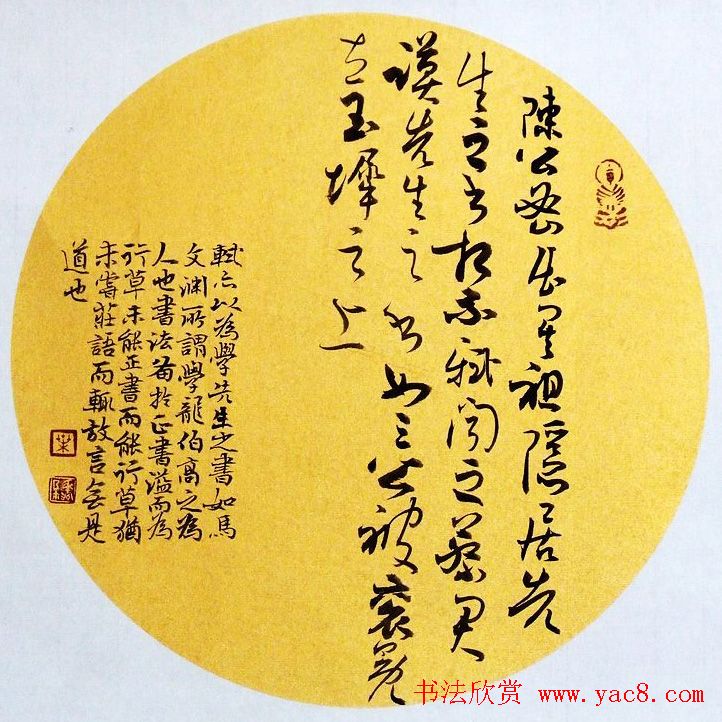 陳公密出其祖隱居先
生之書相示軾聞之蔡君
謨先生之書如三公被袞冕
立玉墀之上
軾亦以為學先生之書如馬
文淵所謂學龍伯高之為
人也書法備於正書溢而為
行草未能正書而能行草猶
未嘗莊語而輒放言無是
道也
书法欣赏 www.yac8.com